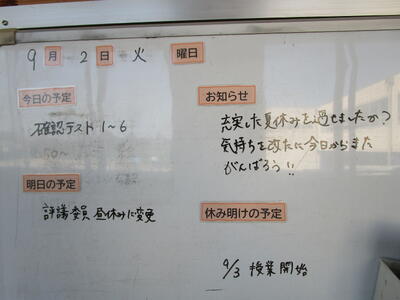 9月2日火曜日
今日の予定
確認テスト 1~6
明日の予定
評議委員 昼休みに変更
お知らせ
充実した夏休みを過せましたか?
気持ちを改たに今日からまた
がんばろう!!
休み明けの予定
9/3 授業開始